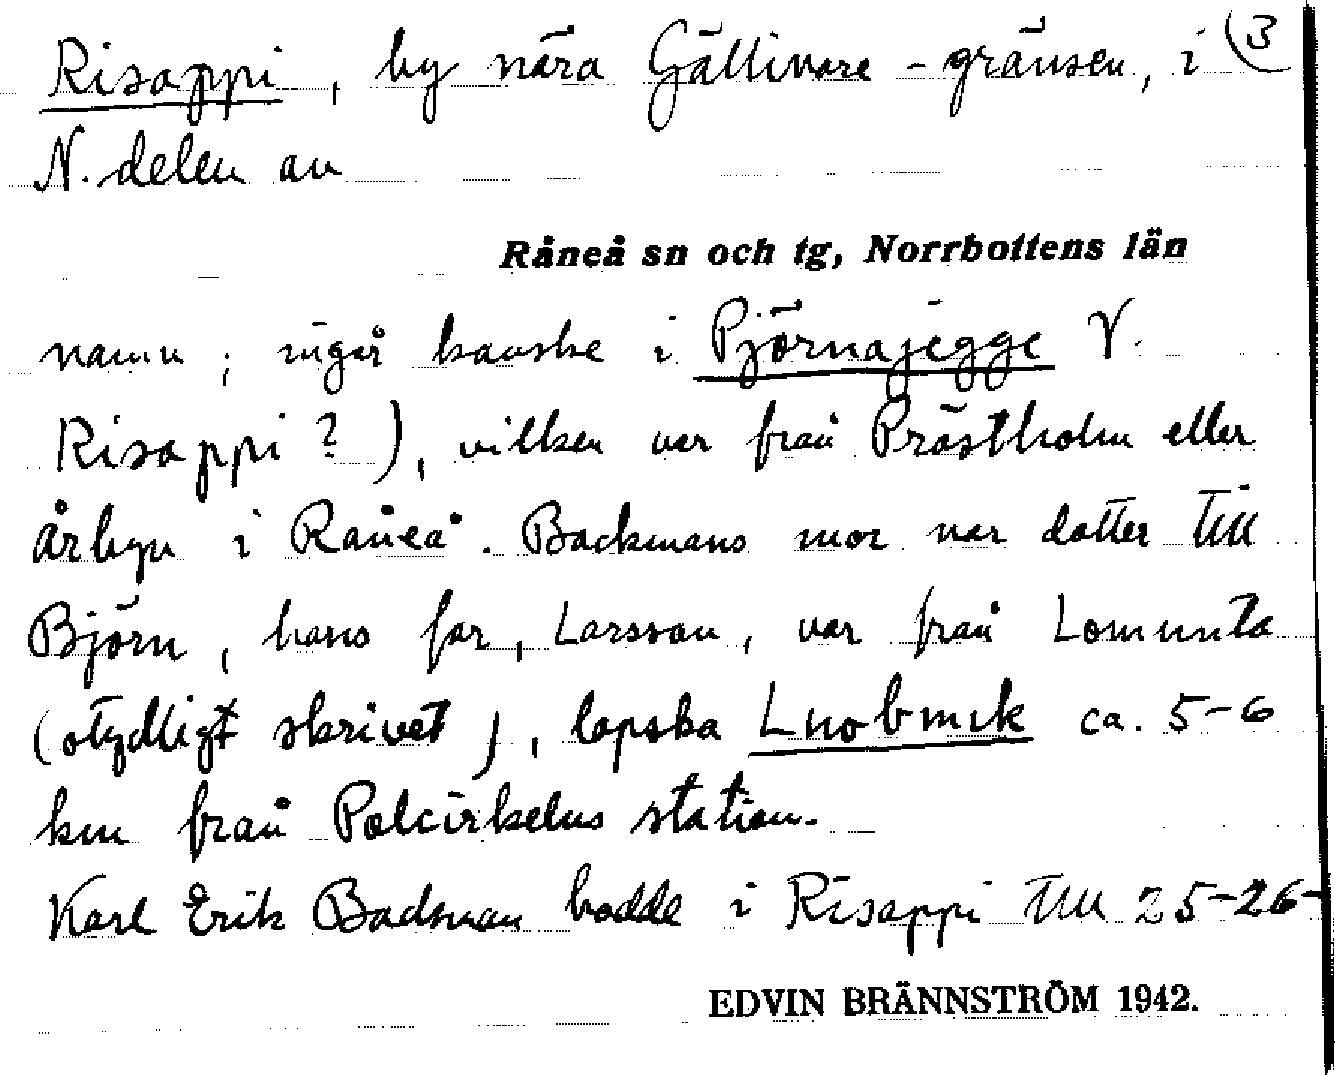 Risappi, by nära Gällivare-gränsen, i (3
N. delen av
Råneå sn och tg, Norrbottens län
namn; ingår kanske i Pjörnajegge V.
Risappi?), vilken var från Prästholm eller
Årbyn i Råneå. Backmans mor var dotter till
Björn, hans far, Larsson, var från Lomunta
(otydligt skrivet), lapska Luobmuk ca. 5-6
km från Polcirkelns station.
Karl Erik Backman bodde i Risappi till 25-26-
EDVIN BRÄNNSTRÖM 1942.